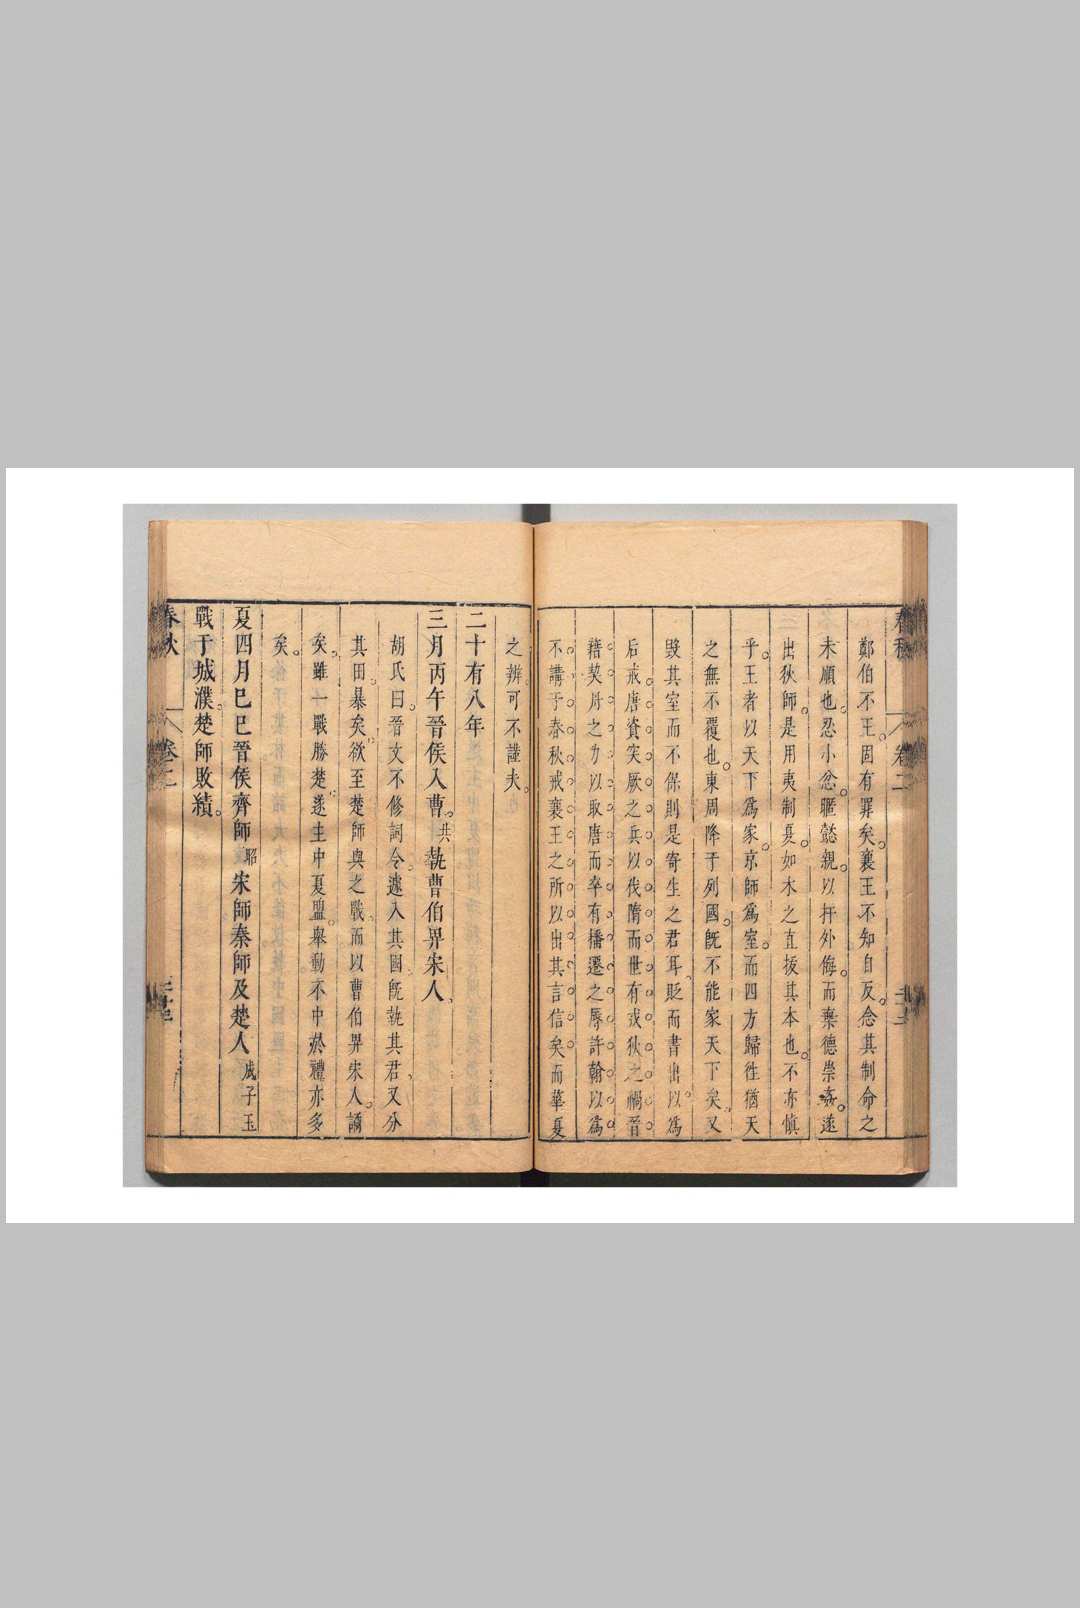 鄭伯不王固有罪矣襄王不知自反念其制命之
未順也忍小忿暱懿親以扞外侮而棄德崇姦遂
出狄師是用夷制夏如木之直拔其本也不亦慎
乎王者以天下爲家京師爲室而四方歸往猶天
之無不覆也東周降于列國既不能家天下矣又
毀其室而不保則是寄生之君耳貶而書出以爲
后戒唐資突厥之兵以伐隋而世有戎狄之禍晉
藉契丹之力以取唐而卒有播遷之辱許翰以爲
不講于春秋戒襄王之所以出其言信矣而華夏
之辨可不謹夫
二十有八年
三月丙午晉侯入曹共執曹伯畀宋人
胡氏曰晉文不修詞令遽入其國既執其君又分
其田暴矣欲至楚師與之戰而以曹伯畀宋人譎
矣雖一戰勝楚遂主中夏盟舉動不中於禮亦多
矣
夏四月己巳晉侯齊師昭宋師秦師及楚人成子玉
戰于城濮楚師敗績
春秋 卷二